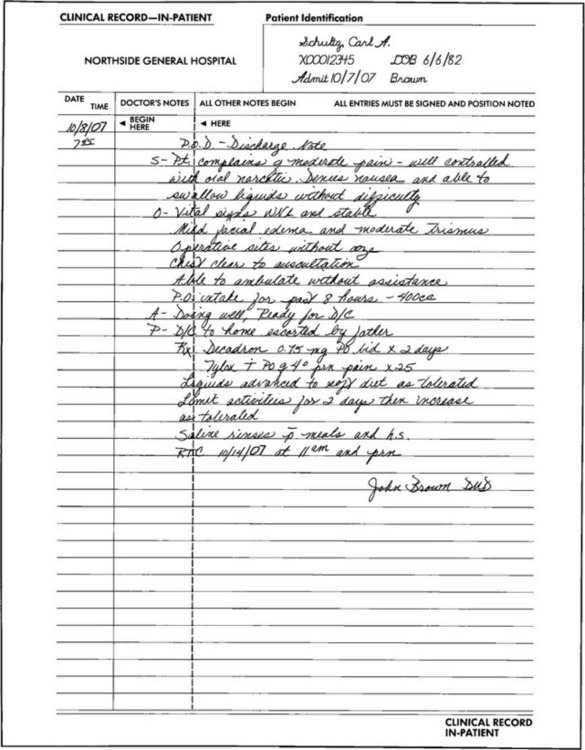 CLINICAL RECORD—IN-PATIENT
Patient Identification
NORTHSIDE GENERAL HOSPITAL
Schultz, Carl A.
X00012345 DOB 6/6/82
Admit 10/7/07 Brown
DATE TIME DOCTOR'S NOTES ALL OTHER NOTES BEGIN ALL ENTRIES MUST BE SIGNED AND POSITION NOTED
10/8/07 ◄ BEGIN HERE ◄ HERE
P.O.D. - Discharge Note
S - Pt. complains of moderate pain - well controlled
with oral narcotic. Denies nausea and able to
swallow liquids without difficulty
O - Vital signs WNL and stable
Mild facial edema and moderate trismus
Operative sites without ooze
Chest clear to auscultation
Able to ambulate without assistance
P.O. intake for past 8 hours - 400cc
A - Doing well, Ready for D/C
P - D/C to home escorted by father
Rx: Decadron 0.75 mg PO bid x 2 days
Tylox † PO q 4° prn pain x 25
Liquids advanced to soft diet as tolerated
Limit activities for 2 days then increase
as tolerated
Saline rinses p̄ meals and h.s.
RTC 10/14/07 at 11 am and prn
John Brown DMD
CLINICAL RECORD
IN-PATIENT